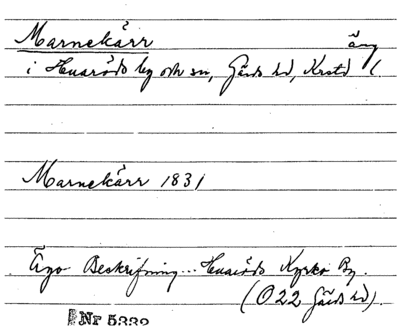 Marnekärr äng
i Huaröds by och sn, Gärds hd, Krstd l.
Marnekärr 1831
Ägo Beskrifning... Huaröds Kyrko By.
(O22 Gärds hd).
Nr 5332